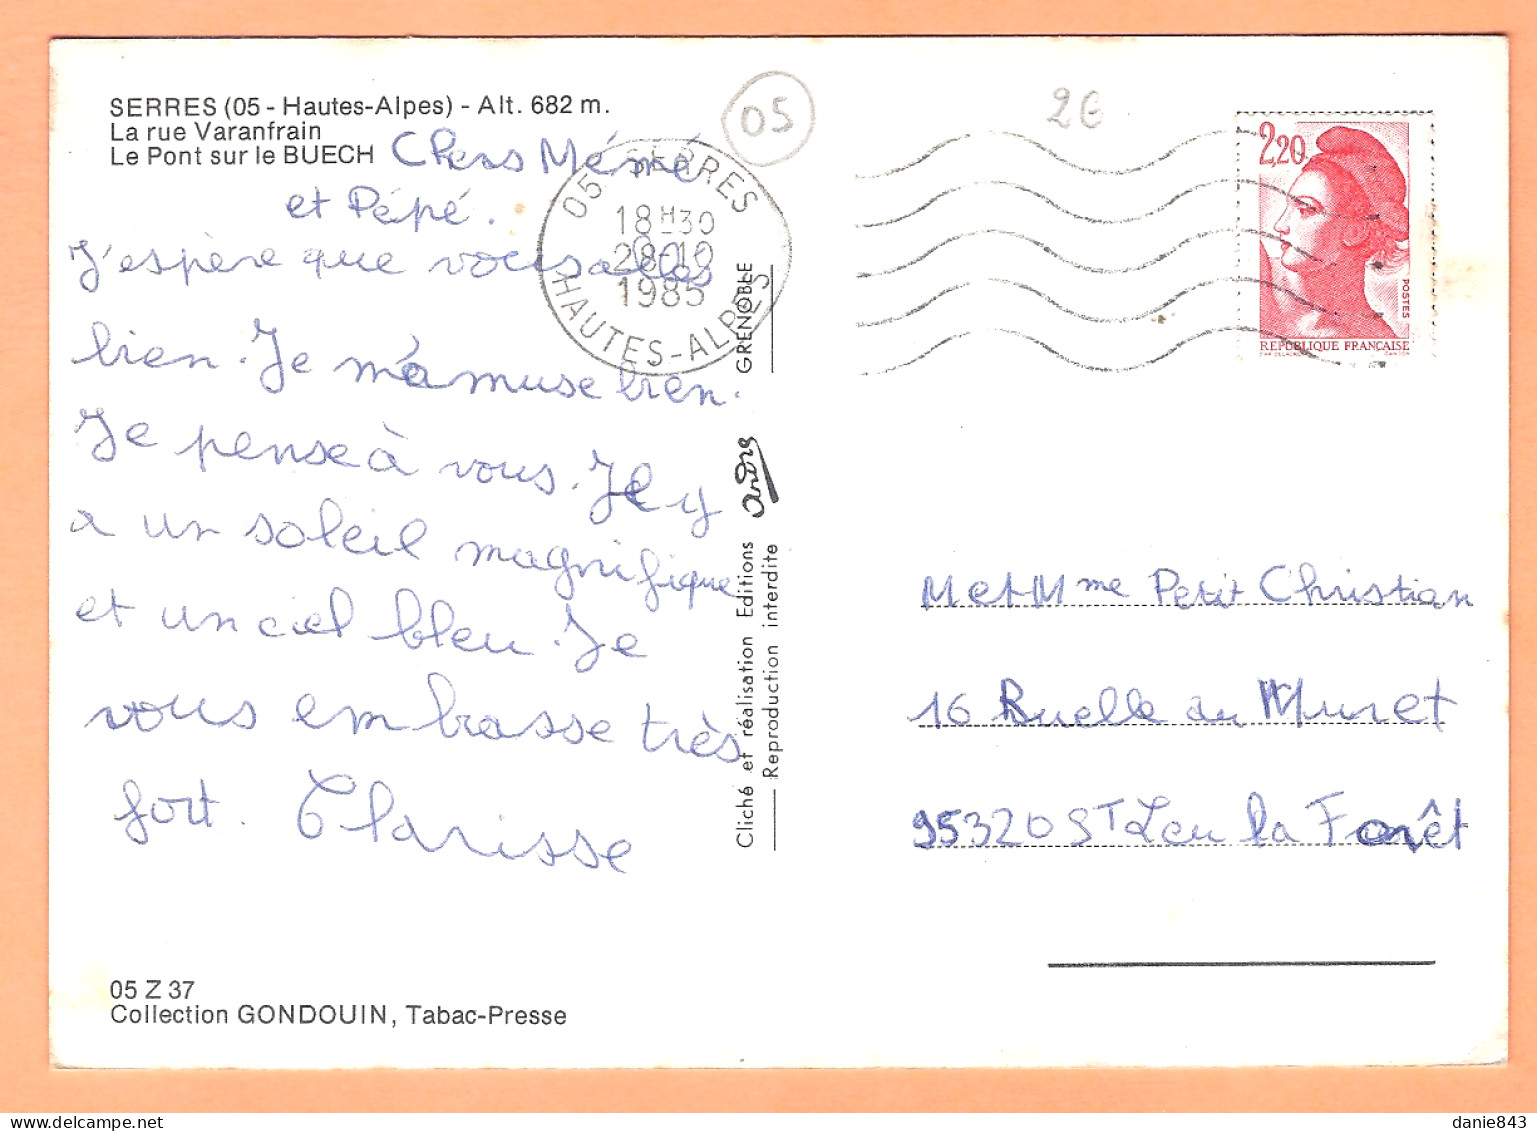 SERRES (05 - Hautes-Alpes) - Alt. 682 m.
La rue Varanfrain
Le Pont sur le BUECH
Chers Mémé
et Pépé.
J'espère que vous alles
bien. Je m'amuse bien.
Je pense à vous. Il y
a un soleil magnifique
et un ciel bleu. Je
vous embrasse très
fort. Clarisse
05 Z 37
Collection GONDOUIN, Tabac-Presse
05 SERRES
18H30
28-10
1985
HAUTES-ALPES
Cliché et réalisation Editions André GRENOBLE
Reproduction interdite
05
2€
2,20
POSTES
REPUBLIQUE FRANÇAISE
M et Mme Petit Christian
16 Ruelle du Muret
95320 ST Leu la Forêt
danie843